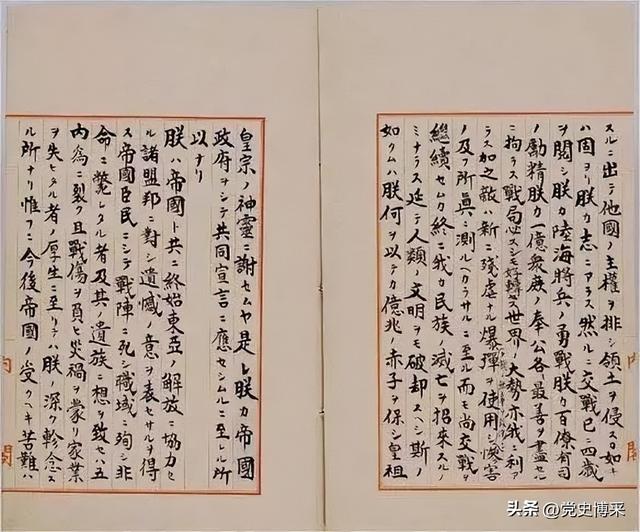 スルニ出テ他國ノ主權ヲ排シ領土ヲ侵スカ如キ
ハ固ヨリ朕カ志ニアラス然ルニ交戰已ニ四歳
ヲ閲シ朕カ陸海將兵ノ勇戰朕カ百僚有司
ノ勵精朕カ一億衆庶ノ奉公各〻最善ヲ盡セル
ニ拘ラス戰局必スシモ好轉セス世界ノ大勢亦我ニ利ア
ラス加之敵ハ新ニ殘虐ナル爆彈ヲ使用シ慘害
ノ及フ所眞ニ測ルヘカラサルニ至ル而モ尚交戰ヲ
繼續セムカ終ニ我カ民族ノ滅亡ヲ招來スルノ
ミナラス延テ人類ノ文明ヲモ破却スヘシ斯ノ
如クムハ朕何ヲ以テカ億兆ノ赤子ヲ保シ皇祖
内閣
皇宗ノ神靈ニ謝セムヤ是レ朕カ帝國
政府ヲシテ共同宣言ニ應セシムルニ至レル所
以ナリ
朕ハ帝國ト共ニ終始東亞ノ解放ニ協力セ
ル諸盟邦ニ對シ遺憾ノ意ヲ表セサルヲ得
ス帝國臣民ニシテ戰陣ニ死シ職域ニ殉シ非
命ニ斃レタル者及其ノ遺族ニ想ヲ致セハ五
内爲ニ裂ク且戰傷ヲ負ヒ災禍ヲ蒙リ家業
ヲ失ヒタル者ノ厚生ニ至リテハ朕ノ深ク軫念ス
ル所ナリ惟フニ今後帝國ノ受クヘキ苦難ハ
内閣
头条 @党史博采